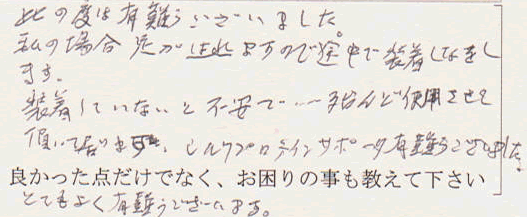 此の度は有難うございました。
私の場合足がはれますので途中で装着しなをし
ます。
装着していないと不安で…殆んど使用させて
頂いて居ます、シルクプロテインサポータ有難うございました。
良かった点だけでなく、お困りの事も教えて下さい
とてもよく有難うございます。